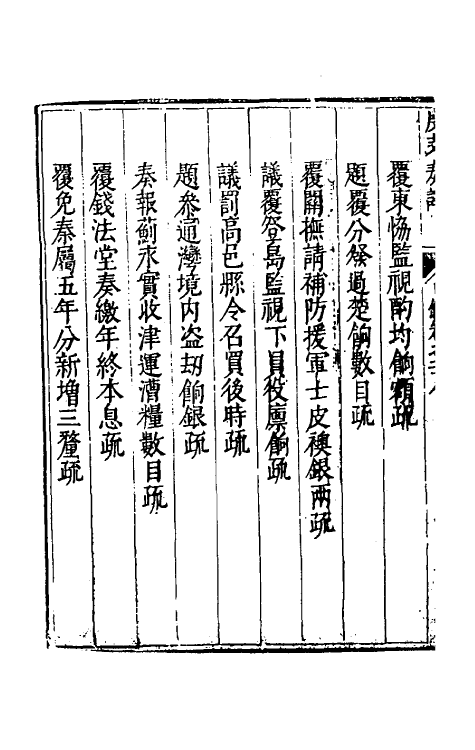 覆東恊監視酌均餉額疏
題覆分發過楚餉數目疏
覆關撫請補防援軍士皮襖銀兩疏
議覆登島監視下員役廪餉疏
議罰高邑縣令召買後時疏
題參通灣境内盗刼餉銀疏
奏報薊永實收津運漕糧數目疏
覆錢法堂奏繳年終本息疏
覆免秦屬五年分新增三釐疏